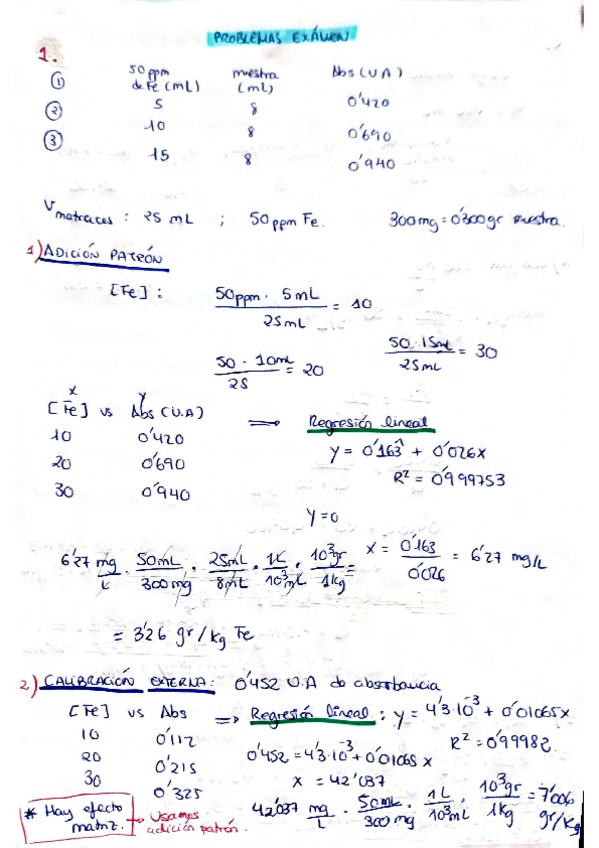 PROBLEMAS EXÁMEN
1.
50 ppm de Fe (mL) muestra (mL) Abs (U.A)
① 5 8 0'420
② 10 8 0'690
③ 15 8 0'940
Vmatraces : 25 mL ; 50 ppm Fe. 300 mg = 0'300 gr muestra.
1) ADICIÓN PATRÓN
[Fe] : 50ppm · 5 mL / 25 mL = 10
50 · 10mL / 25 = 20 50 · 15mL / 25 mL = 30
x y
[Fe] vs Abs (U.A) ⇒ Regresión lineal
10 0'420 y = 0'163 + 0'026x
20 0'690 R² = 0'999753
30 0'940
y=0
x = 0'163 / 0'026 = 6'27 mg/L
6'27 mg/L · 50mL / 300 mg · 25mL / 8mL · 1L / 10³mL · 10³gr / 1kg =
= 3'26 gr/kg Fe
2) CALIBRACIÓN EXTERNA: 0'452 U.A de absorbancia
[Fe] vs Abs ⇒ Regresión lineal : y = 4'3·10⁻³ + 0'01065x
10 0'112 R² = 0'99982
20 0'215 0'452 = 4'3·10⁻³ + 0'01065 x
30 0'325 x = 42'037
42'037 mg/L · 50mL / 300 mg · 1L / 10³mL · 10³gr / 1kg = 7'006 gr/kg
* Hay efecto matriz. → Usamos adición patrón.